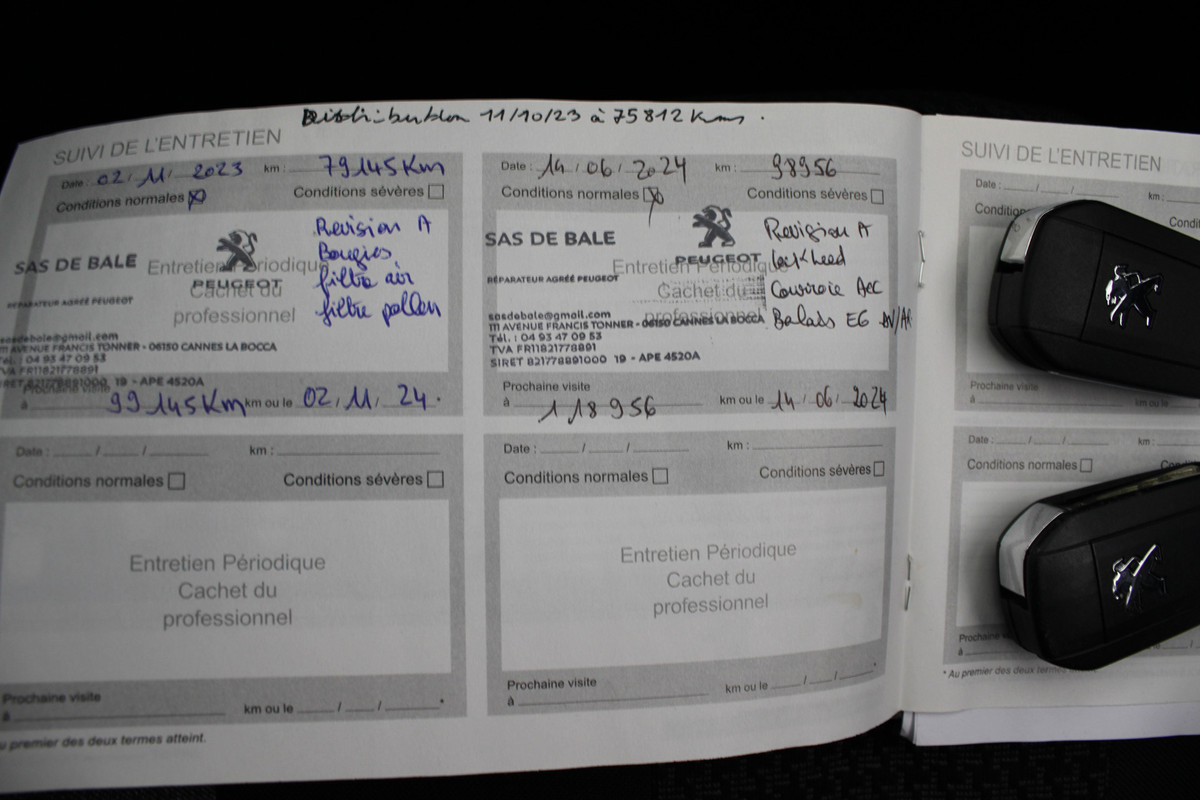 Distribution 11/10/23 à 75812 Kms.
SUIVI DE L'ENTRETIEN
Date : 02 / 11 / 2023 km : 79145 Km
Conditions normales Conditions sévères
SAS DE BALE
RÉPARATEUR AGRÉÉ PEUGEOT
PEUGEOT
Entretien Périodique
Cachet du
professionnel
Revision A
Bougies
filtre air
filtre pollen
sasdebale@gmail.com
111 AVENUE FRANCIS TONNER - 06150 CANNES LA BOCCA
Tél. : 04 93 47 09 53
TVA FR11821778891
SIRET 821778891000 19 - APE 4520A
Prochaine visite
à 99145 Km km ou le 02, 11, 24.
Date : 14 / 06 / 2024 km : 98956
Conditions normales Conditions sévères
SAS DE BALE
RÉPARATEUR AGRÉÉ PEUGEOT
PEUGEOT
Entretien Périodique
Cachet du
professionnel
Revision A
lockheed
Courroie Acc
Balais EG AV/AR
sasdebale@gmail.com
111 AVENUE FRANCIS TONNER - 06150 CANNES LA BOCCA
Tél. : 04 93 47 09 53
TVA FR11821778891
SIRET 821778891000 19 - APE 4520A
Prochaine visite
à 118956 km ou le 14 / 06 / 2024
Date : / / km :
Conditions normales Conditions sévères
Entretien Périodique
Cachet du
professionnel
Prochaine visite
à km ou le / / *
Date : / / km :
Conditions normales Conditions sévères
Entretien Périodique
Cachet du
professionnel
Prochaine visite
à km ou le / / *
u premier des deux termes atteint.
SUIVI DE L'ENTRETIEN
Date : / / km :
Prochaine visite
à
Date : / / km :
Conditions normales
à
* Au premier des deux termes